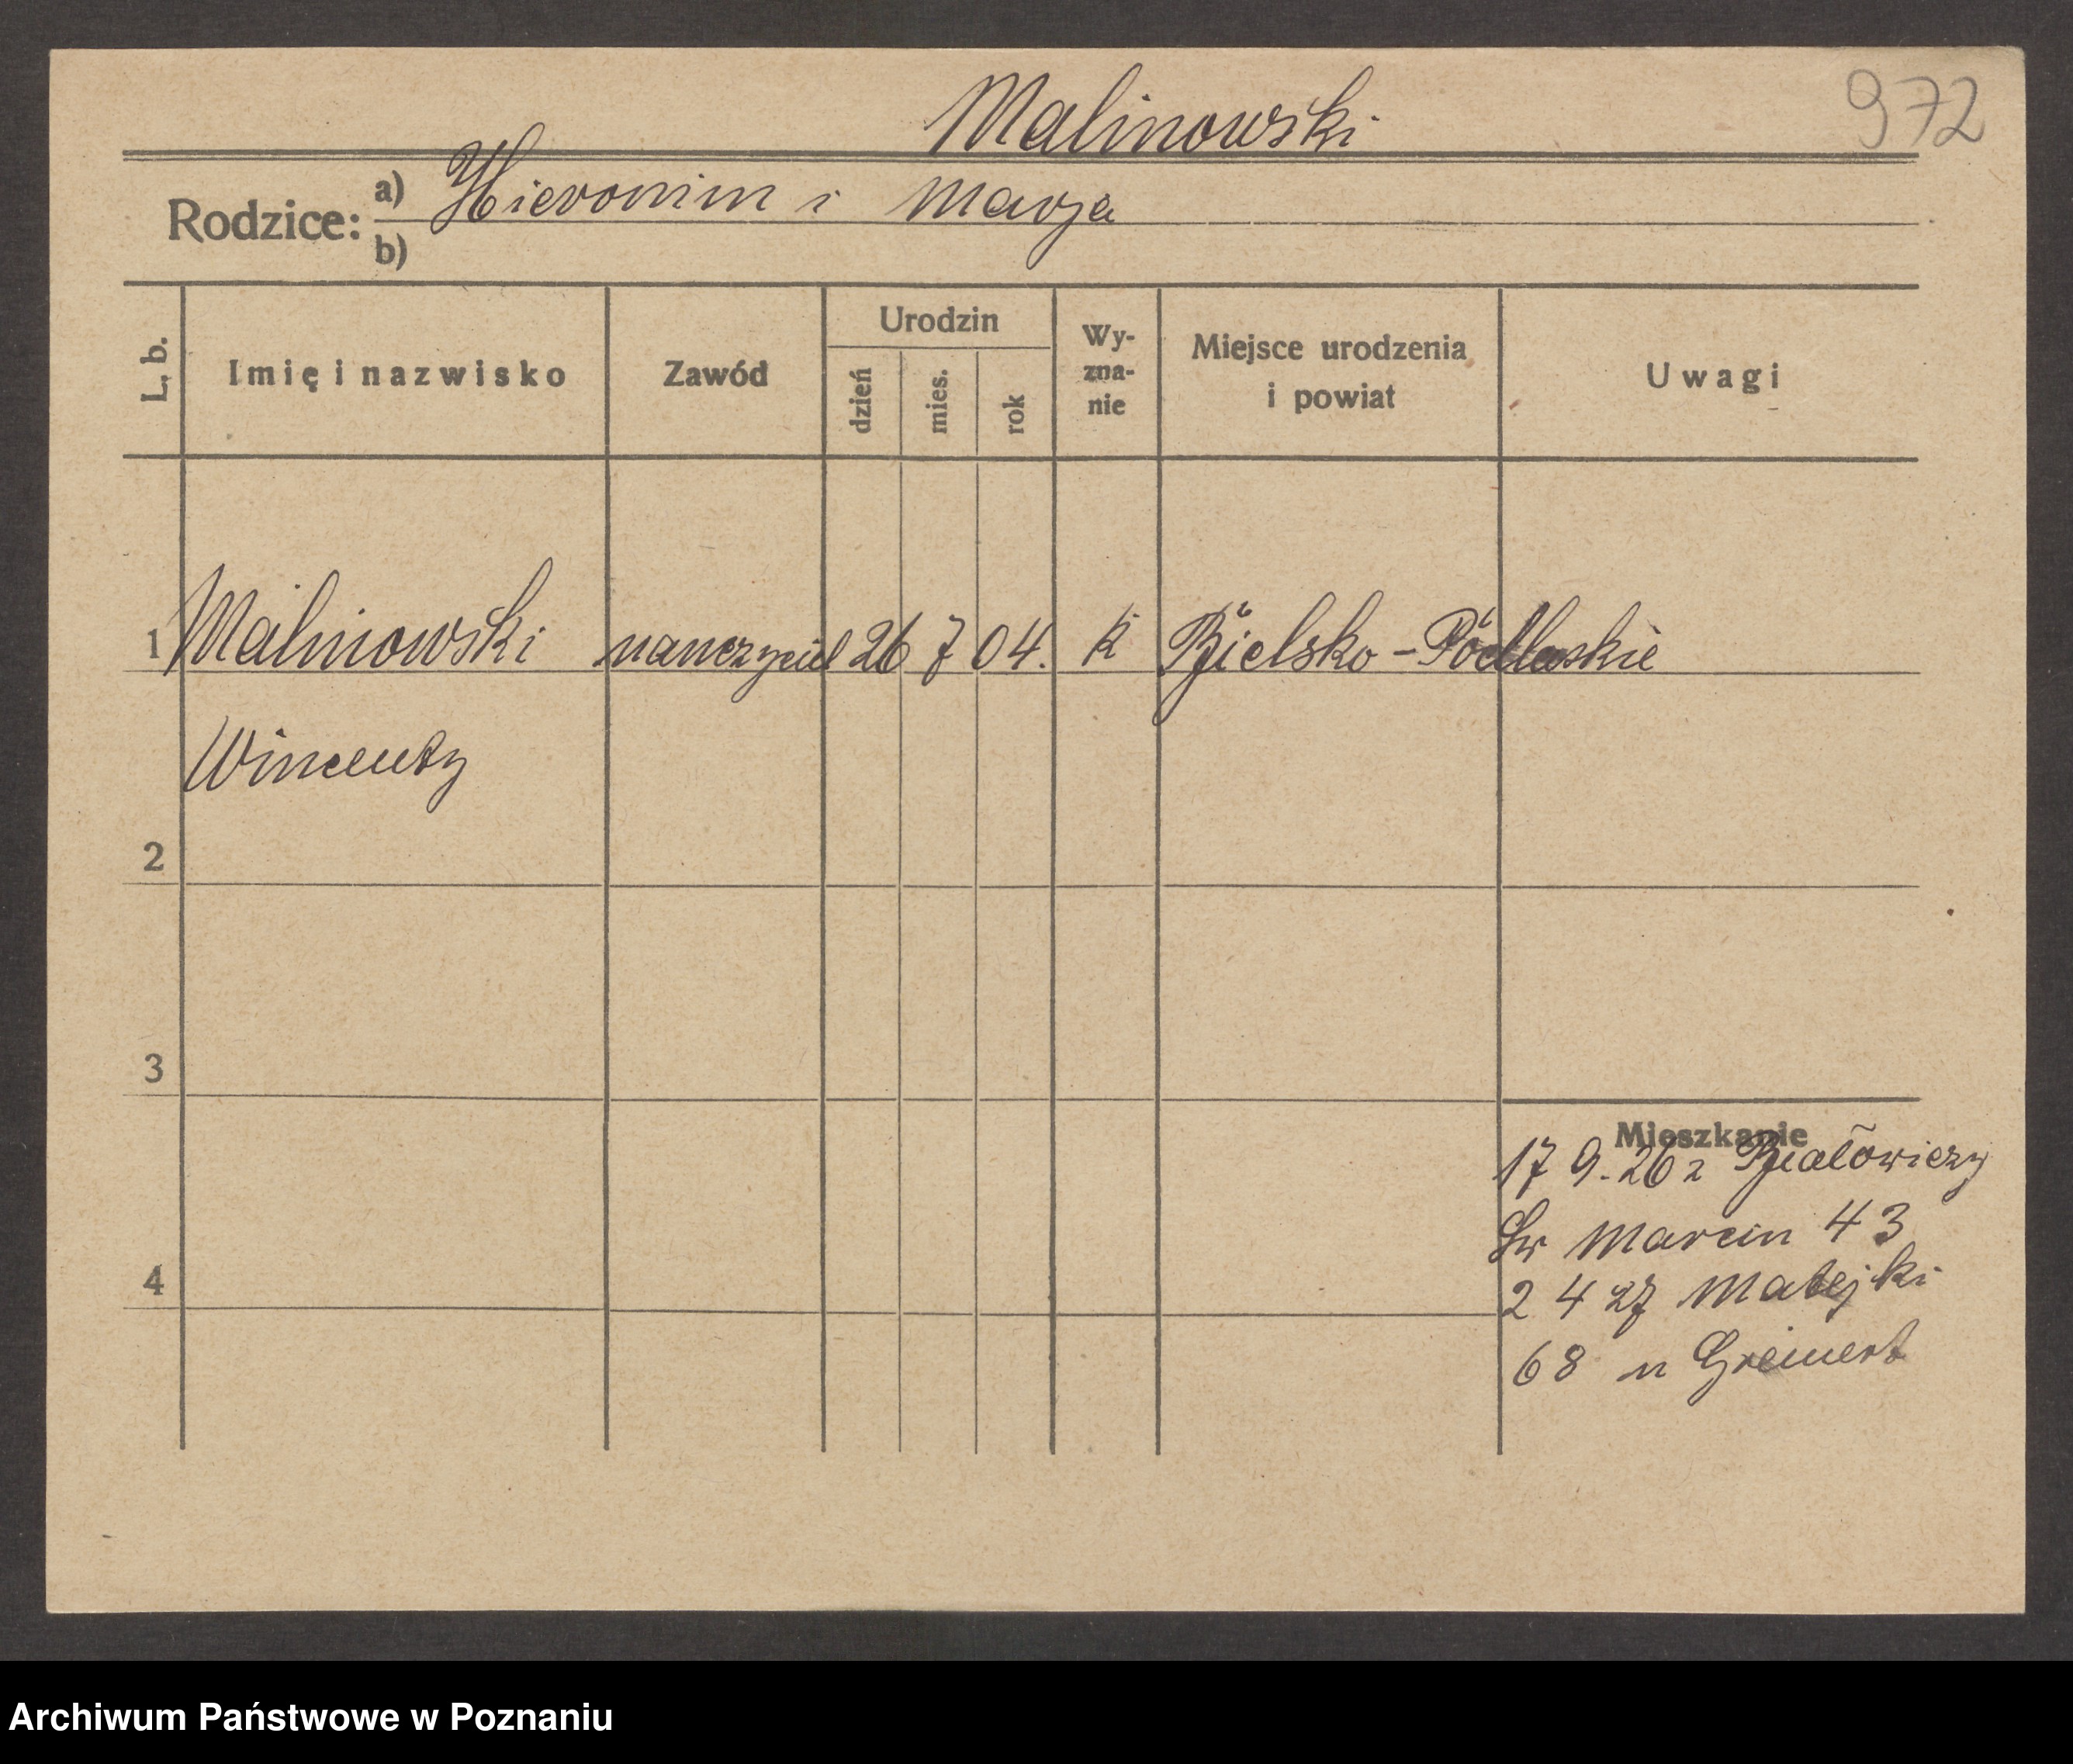 Malinowski
972
Rodzice: a) Hieronim i Marja
b)
L. b.
Imię i nazwisko
Zawód
Urodzin
dzień
mies.
rok
Wy-
zna-
nie
Miejsce urodzenia
i powiat
Uwagi
1 Malinowski nauczyciel 26 7 04. k Bielsko - Podlaskie
Wincenty
2
3
4
Mieszkanie
17 9. 26 z Białowieży
Św Marcin 43
2 4 27 Matejki
68 u Greinert
Archiwum Państwowe w Poznaniu